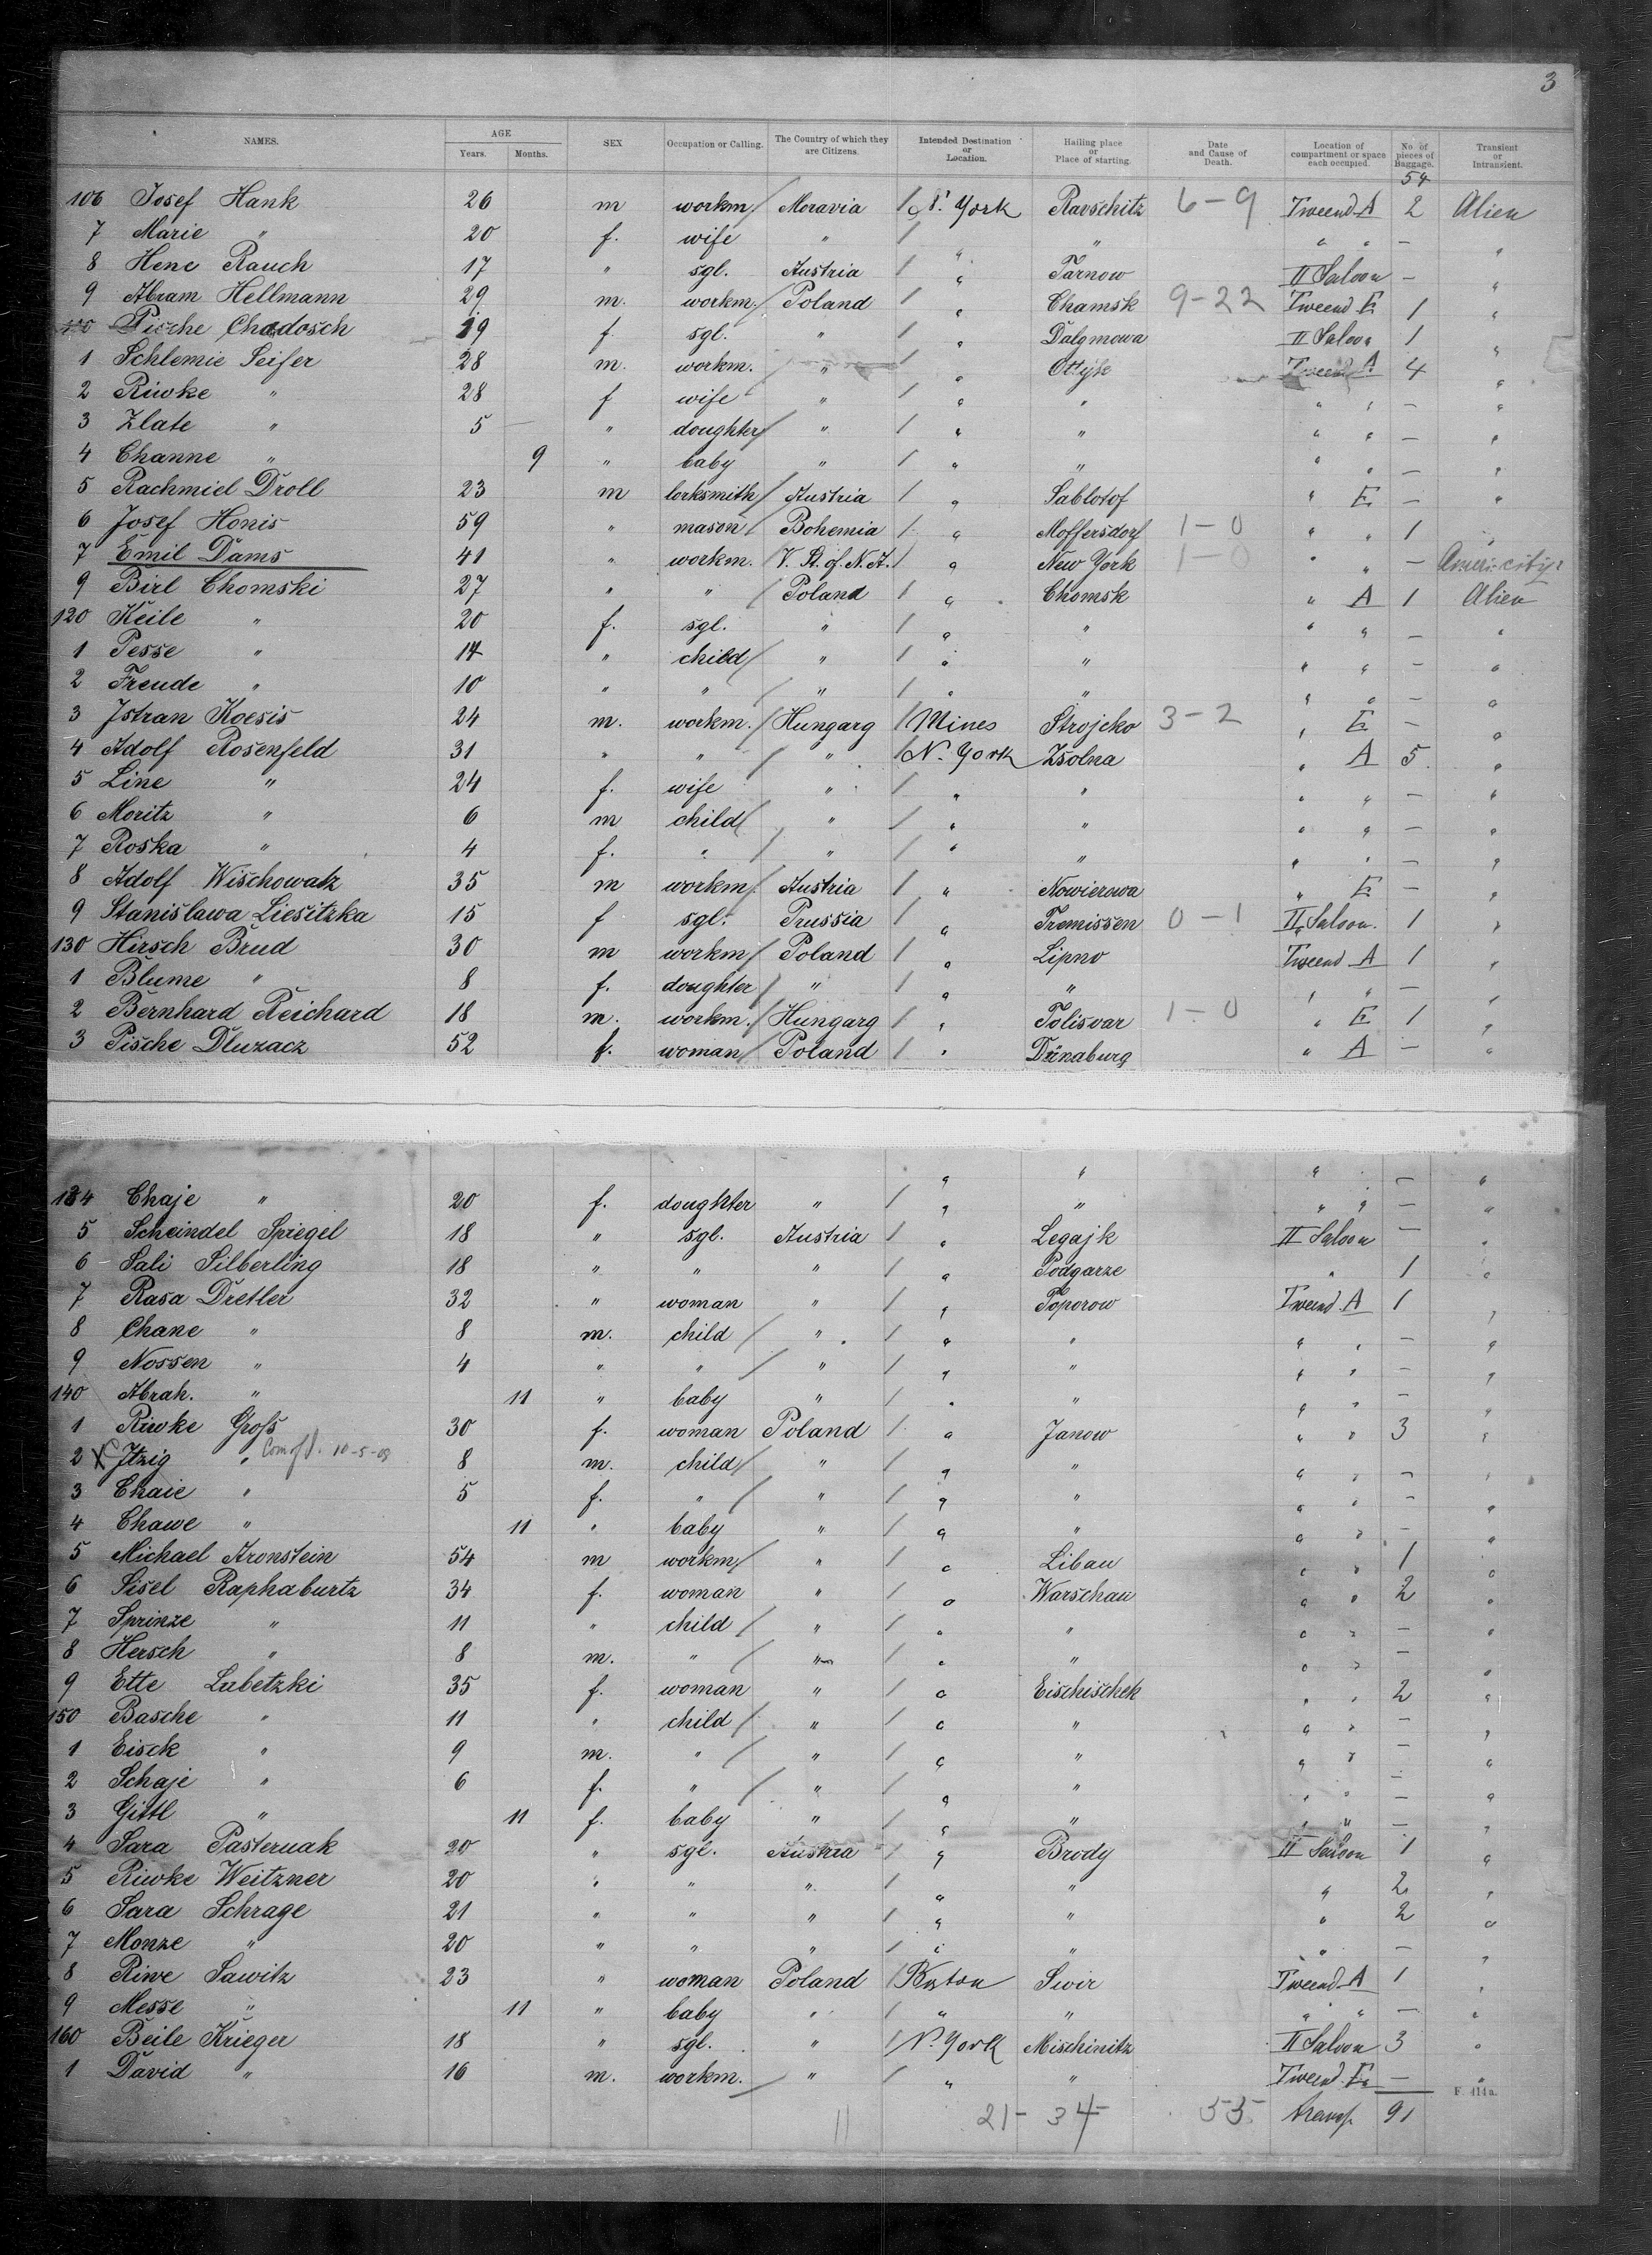 3
NAMES. AGE Years. Months. SEX Occupation or Calling. The Country of which they are Citizens. Intended Destination or Location. Hailing place or Place of starting. Date and Cause of Death. Location of compartment or space each occupied. No. of pieces of Baggage. Transient or Intransient.
54
106 Josef Hank 26 m workm / Moravia / N. York Ravschitz 6-9 Tweend A 2 Alien
7 Marie " 20 f. wife " / " " " " — "
8 Hene Rauch 17 " sgl. Austria / " Tarnow II Saloon — "
9 Abram Hellmann 29 m. workm. / Poland / " Chamsk 9-22 Tweend E 1 "
Pische Chadosch 19 f. sgl. " / " Dalgmowa II Saloon 1 "
1 Schlemie Seifer 28 m. workm. / " / " Ottyk Tweend A 4 "
2 Riwke " 28 f wife " / " " " " — "
3 Zlate " 5 — " doughter / " / " " " " — "
4 Channe " 9 " baby " / " " " " — "
5 Rachmiel Droll 23 m lorksmith / Austria / " Sablotof " E — "
6 Josef Honis 59 " mason / Bohemia / " Moffersdorf 1-0 " " 1 "
7 Emil Dams 41 " workm. / V. St. of N. A. / " New York 1-0 " " — Ameri. citiz.
9 Birl Chomski 27 " " / Poland / " Chomsk " A 1 Alien
120 Keile " 20 f. sgl. " / " " " " — "
1 Pesse " 14 " child / " / " " " " — "
2 Freude " 10 " " / " / " " " " — "
3 Jstran Koesis 24 m. workm. / Hungarg / Mines Strojcko 3-2 " E — "
4 Adolf Rosenfeld 31 " " / " / N. York Zsolna " A 5 "
5 Line " 24 f. wife " / " " " " — "
6 Moritz " 6 m child / " / " " " " — "
7 Roska " 4 f. " / " / " " " " — "
8 Adolf Wischowatz 35 m workm / Austria / " Nowierowa " E — "
9 Stanislawa Liesitzka 15 f sgl. Prussia / " Tremissen 0-1 II Saloon. 1 "
130 Hirsch Brud 30 m workm / Poland / " Lipno Tweend A 1 "
1 Blume " 8 f. doughter / " / " " " " — "
2 Bernhard Reichard 18 m. workm. / Hungarg / " Tolisvar 1-0 " E 1 "
3 Pische Dluzacz 52 f. woman / Poland / " Dünaburg " A — "
" " " — "
134 Chaje " 20 f. doughter " / " " " " — "
5 Scheindel Spiegel 18 " sgl. Austria / " Legajk II Saloon — "
6 Sali Silberling 18 " " " / " Podgarze " 1 "
7 Rasa Dretler 32 " woman " / " Toporow Tweend A 1 "
8 Chane " 8 m. child / " / " " " " — "
9 Nossen " 4 " " / " / " " " " — "
140 Abrah. " 11 " baby " / " " " " — "
1 Riwke Groß 30 f. woman Poland / " Janow " " 3 "
2 X Jtzig " 10-5-09 8 m. child / " / " " " " — "
3 Chaie " 5 f. " / " / " " " " — "
4 Chawe " 11 " baby " / " " " " — "
5 Michael Aronstein 54 m workm / " / " Libau " " 1 "
6 Sisel Raphaburtz 34 f. woman " / " Warschau " " 2 "
7 Sprinze " 11 " child / " / " " " " — "
8 Hersch " 8 m. " / " / " " " " — "
9 Ette Lubetzki 35 f. woman " / " Eischischek " " 2 "
150 Basche " 11 " child / " / " " " " — "
1 Eisek " 9 m. " / " / " " " " — "
2 Schaje " 6 f. " / " / " " " " — "
3 Gittl " 11 f. baby " / " " " " — "
4 Sara Pasternak 20 " sgl. Austria / " Brody II Saloon 1 "
5 Riwke Weitzner 20 " " " / " " " 2 "
6 Sara Schrage 21 " " " / " " " 2 "
7 Monze " 20 " " " / " " " — "
8 Riwe Sawitz 23 " woman Poland / Boston Swir Tweend A 1 "
9 Messe " 11 " baby " / " " " " — "
160 Beile Krieger 18 " sgl. " / N. York Mischinitz II Saloon 3 "
1 David " 16 m. workm. / " / " " Tweend E — "
F. 414a.
11 21- 34- 55 transp. 91